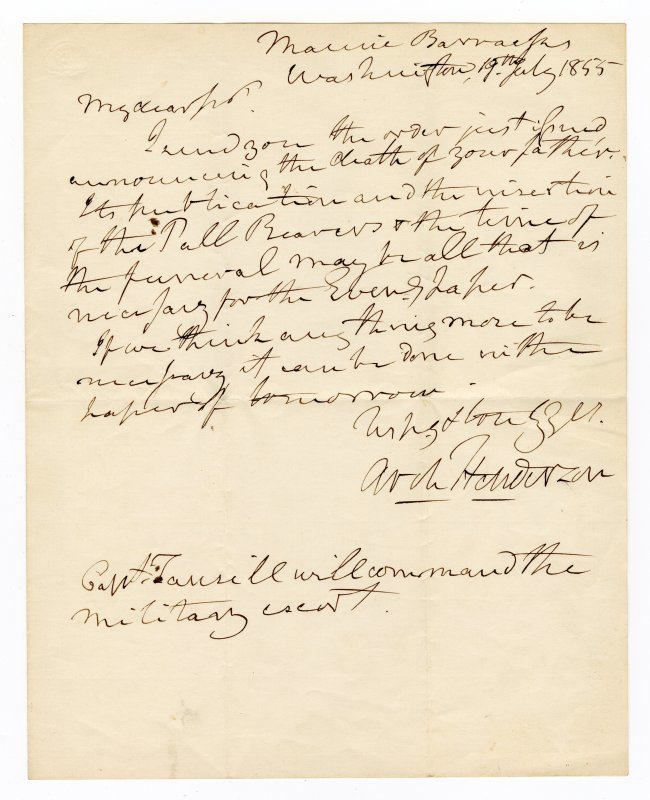 Marine Barracks
Washington, 19th July 1855
My dear Sir.
I send you the order just issued
announcing the death of your father.
Its publication and the insertion
of the Pall Bearers & the time of
the funeral may be all that is
necessary for the Eveng paper.
If we think any thing more to be
necessary it can be done in the
paper of tomorrow.
Arch Henderson
Capt Tansill will command the
military escort.